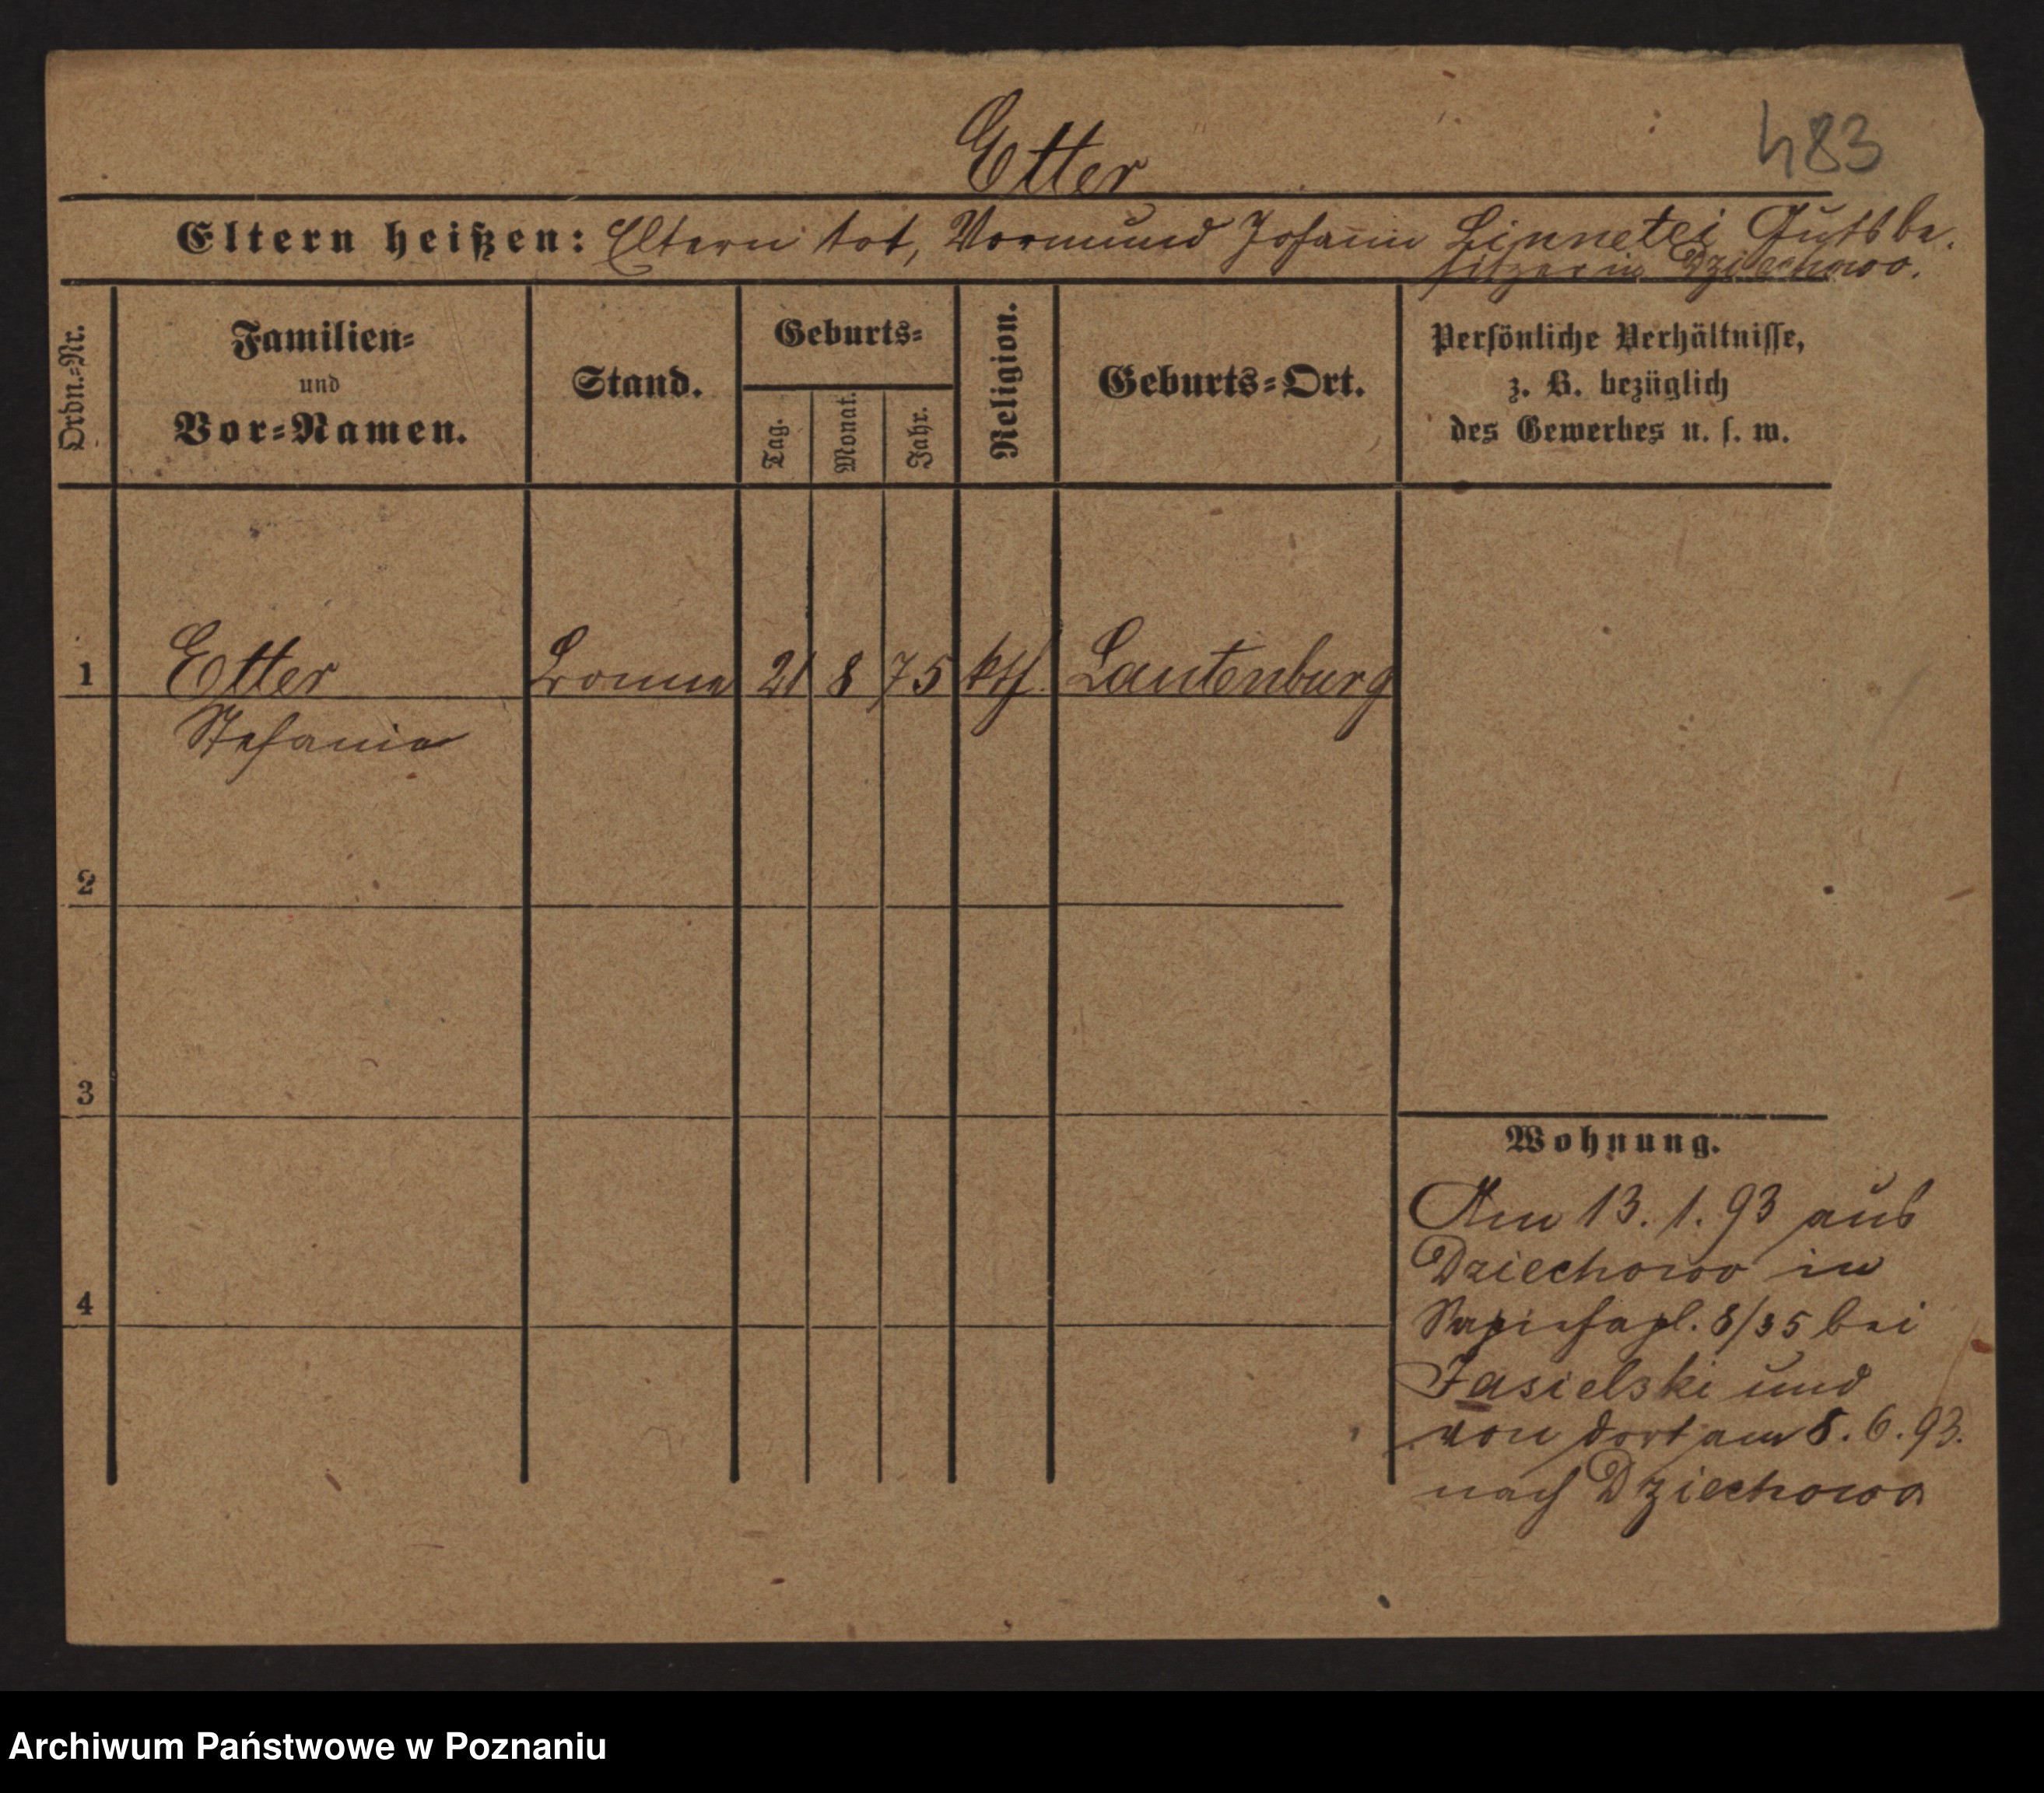 Etter
483
Eltern heißen: Eltern tot, Vormund Johann Linnetei Gutsbe-
sitzer in Dziechowo.
Ordn.=Nr.
Familien=
und
Vor=Namen.
Stand.
Geburts=
Tag.
Monat.
Jahr.
Religion.
Geburts=Ort.
Persönliche Verhältnisse,
z. B. bezüglich
des Gewerbes u. s. w.
1 Etter 21 8 75 kth. Lautenburg
Stefania
2
3
4
Wohnung.
Am 13. 1. 93 aus
Dziechowo in
Sapiehapl. 8/35 bei
Jasielski und
von dort am 8. 6. 93.
nach Dziechowo
Archiwum Państwowe w Poznaniu